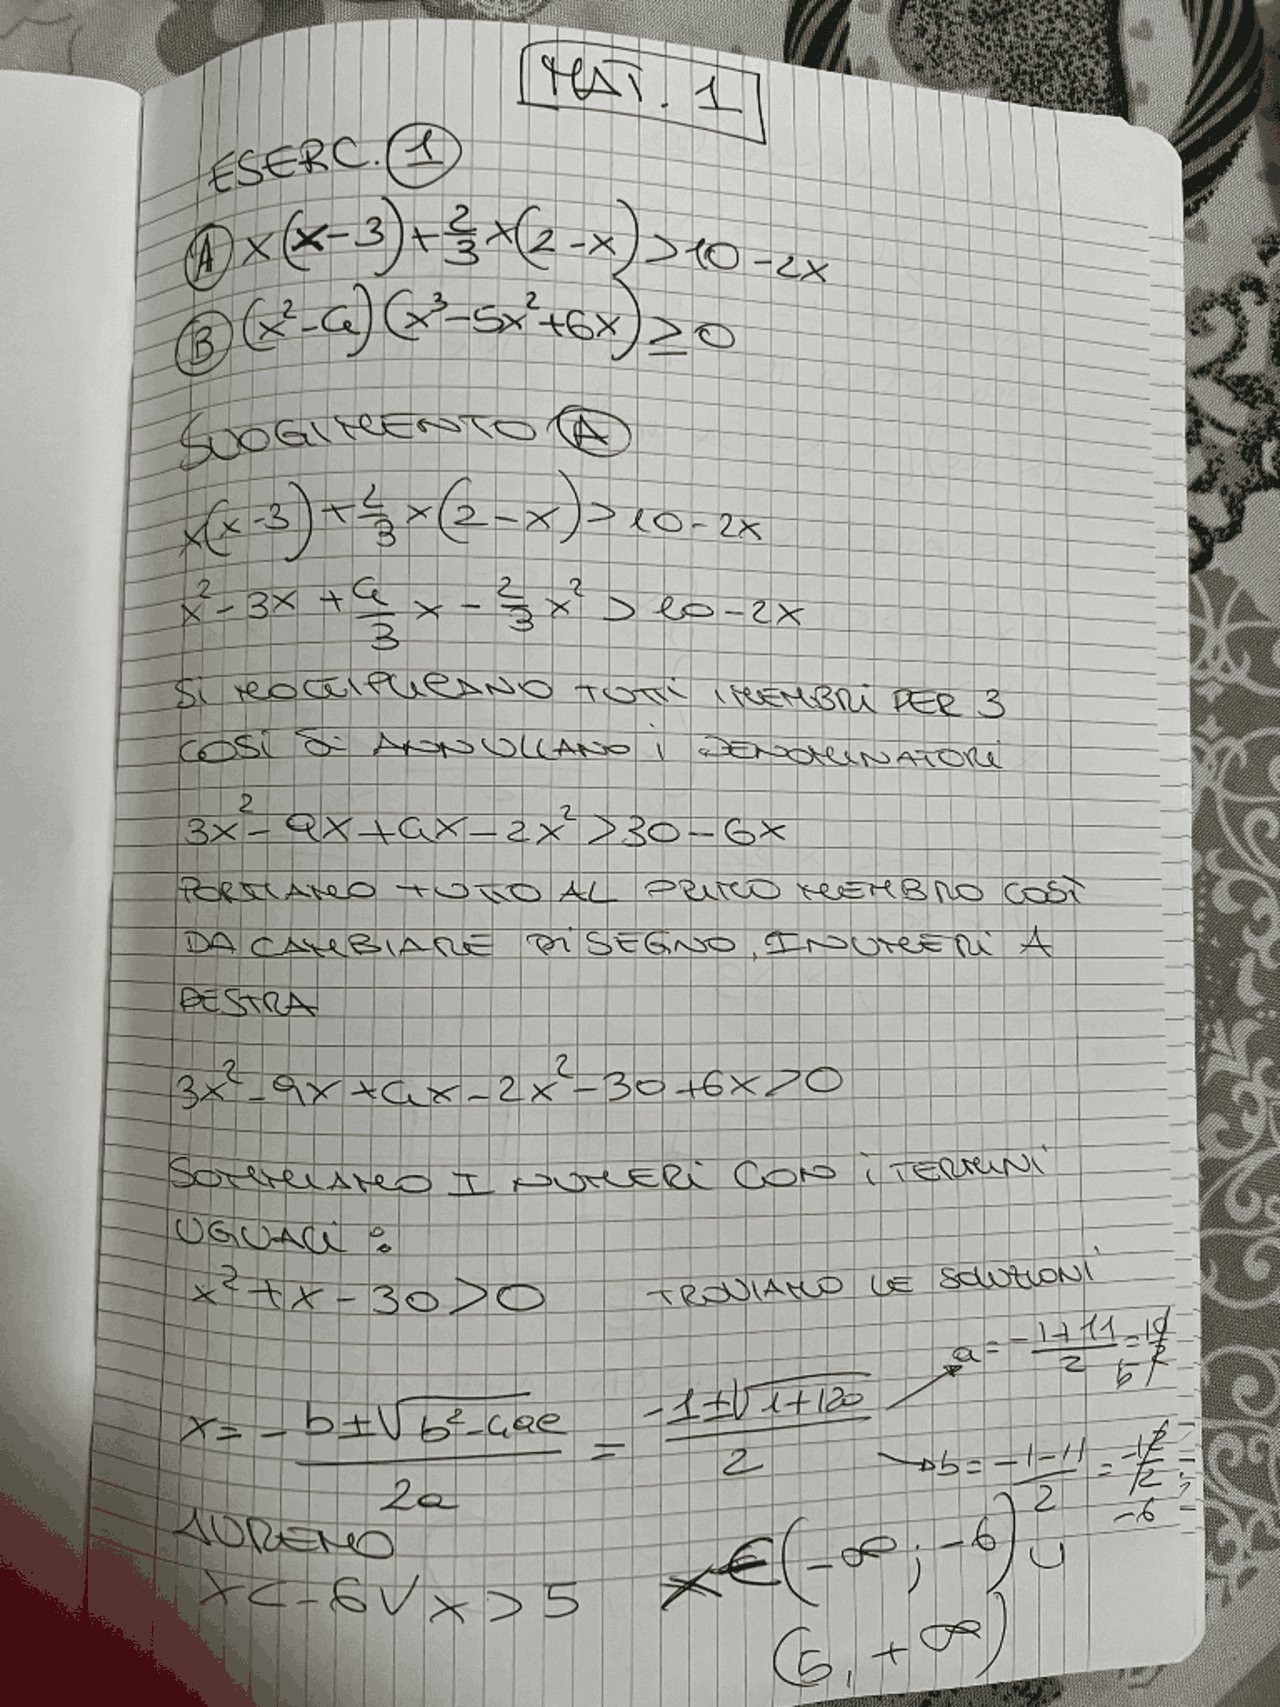 MAT. 1
ESERC. 1
A x(x-3)+2/3 x(2-x)>10-2x
B (x²-4)(x³-5x²+6x)≥0
SVOGIMENTO A
x(x-3)+2/3 x(2-x)>10-2x
x²-3x+4/3 x-2/3 x²>10-2x
SI MOLTIPLICANO TUTTI I MEMBRI PER 3
COSÌ SI ANNULLANO I DENOMINATORI
3x²-9x+4x-2x²>30-6x
PORTIAMO TUTTO AL PRIMO MEMBRO COSÌ
DA CAMBIARE DI SEGNO, I NUMERI A
DESTRA
3x²-9x+4x-2x²-30+6x>0
SOMMIAMO I NUMERI CON I TERMINI
UGUALI:
x²+x-30>0 TROVIAMO LE SOLUZIONI
x=-b±√b²-4ac/2a = -1±√1+120/2
a=-1+11/2=10/2 5
b=-1-11/2=-12/2 -6
AVREMO
x<-6 V x>5 x∈(-∞;-6) ∪
(5,+∞)